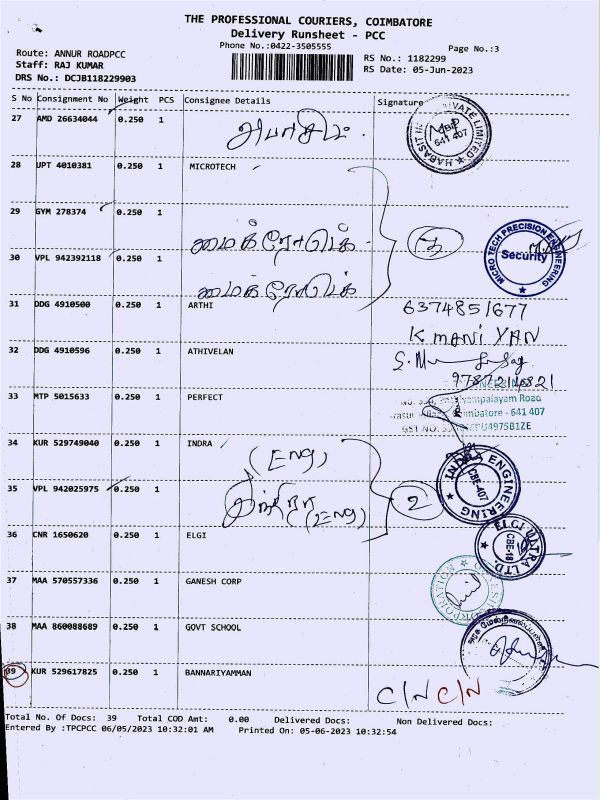 THE PROFESSIONAL COURIERS, COIMBATORE
Delivery Runsheet - PCC
Phone No.:0422-3505555
Page No.:3
Route: ANNUR ROADPCC
Staff: RAJ KUMAR
DRS No.: DCJB118229903
RS No.: 1182299
RS Date: 05-Jun-2023
S No Consignment No Weight PCS Consignee Details Signature
27 AMD 26634044 0.250 1
28 UPT 4010381 0.250 1 MICROTECH
29 GYM 278374 0.250 1
மைக்ரோடெக்
30 VPL 942392118 0.250 1
மைக்ரோடெக்
MICRO TECH PRECISION ENGINEERING
Security
31 DDG 4910500 0.250 1 ARTHI
6374851677
K MANI YAN
32 DDG 4910596 0.250 1 ATHIVELAN
9787214821
33 MTP 5015633 0.250 1 PERFECT
Coimbatore - 641 407
34 KUR 529749040 0.250 1 INDRA
(ENG)
35 VPL 942025975 0.250 1
இந்திரா (ENG)
2
INDRA ENGINEERING
CBE-407
36 CNR 1650620 0.250 1 ELGI
CBE-18
37 MAA 570557336 0.250 1 GANESH CORP
38 MAA 860088689 0.250 1 GOVT SCHOOL
39 KUR 529617825 0.250 1 BANNARIYAMMAN
C/N C/N
Total No. Of Docs: 39 Total COD Amt: 0.00 Delivered Docs: Non Delivered Docs:
Entered By :TPCPCC 06/05/2023 10:32:01 AM Printed On: 05-06-2023 10:32:54